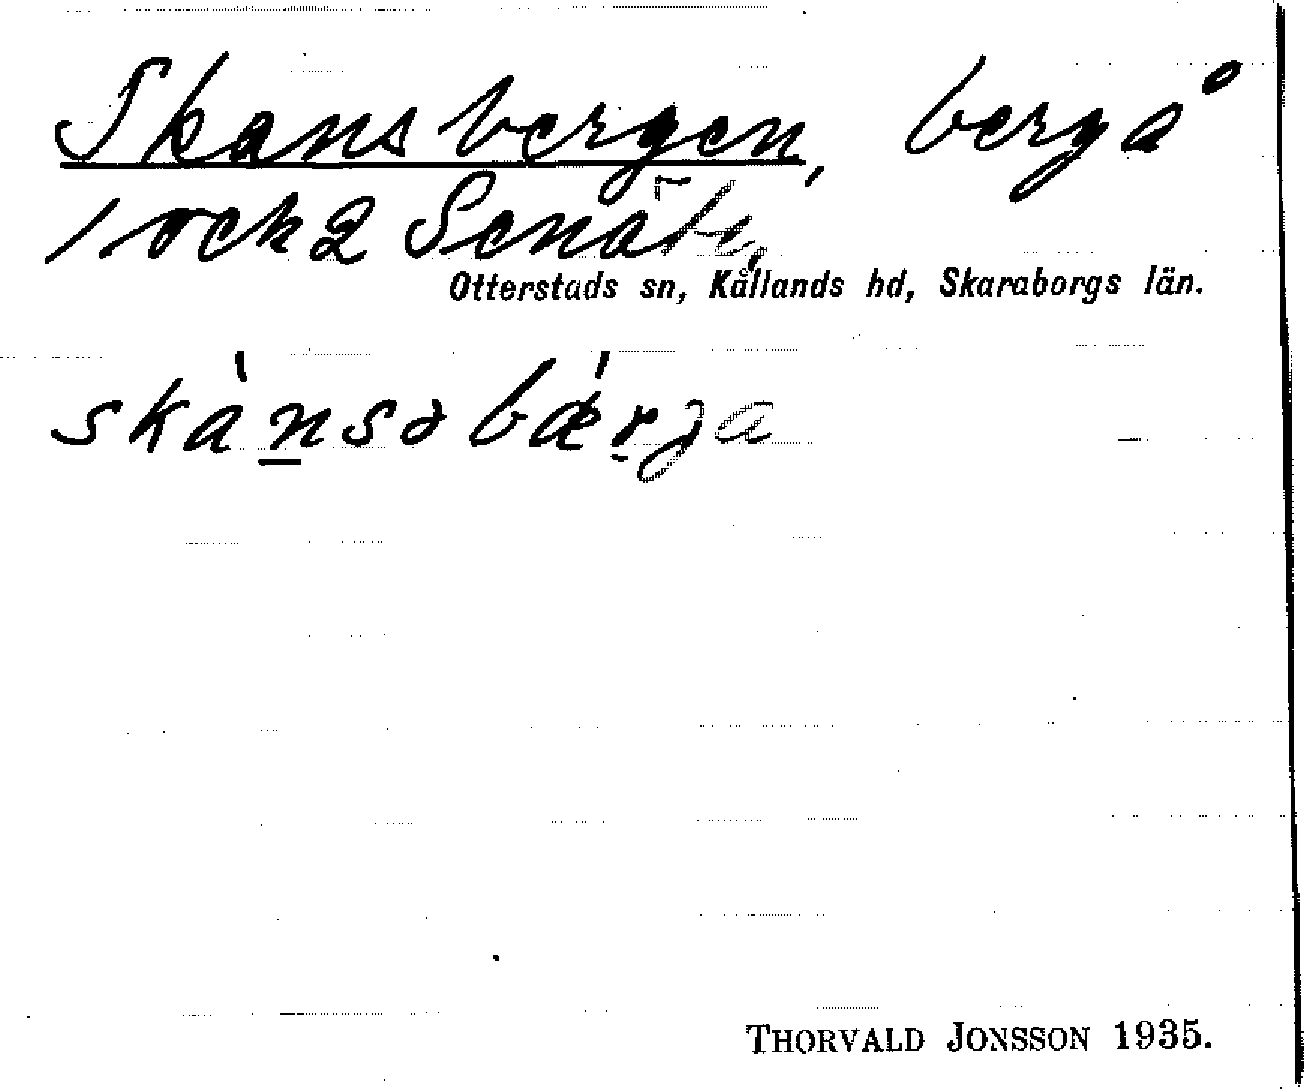 Skansbergen, berg å
1 ock 2 Senäte,
Otterstads sn, Kållands hd, Skaraborgs län.
skànsəbærja
THORVALD JONSSON 1935.